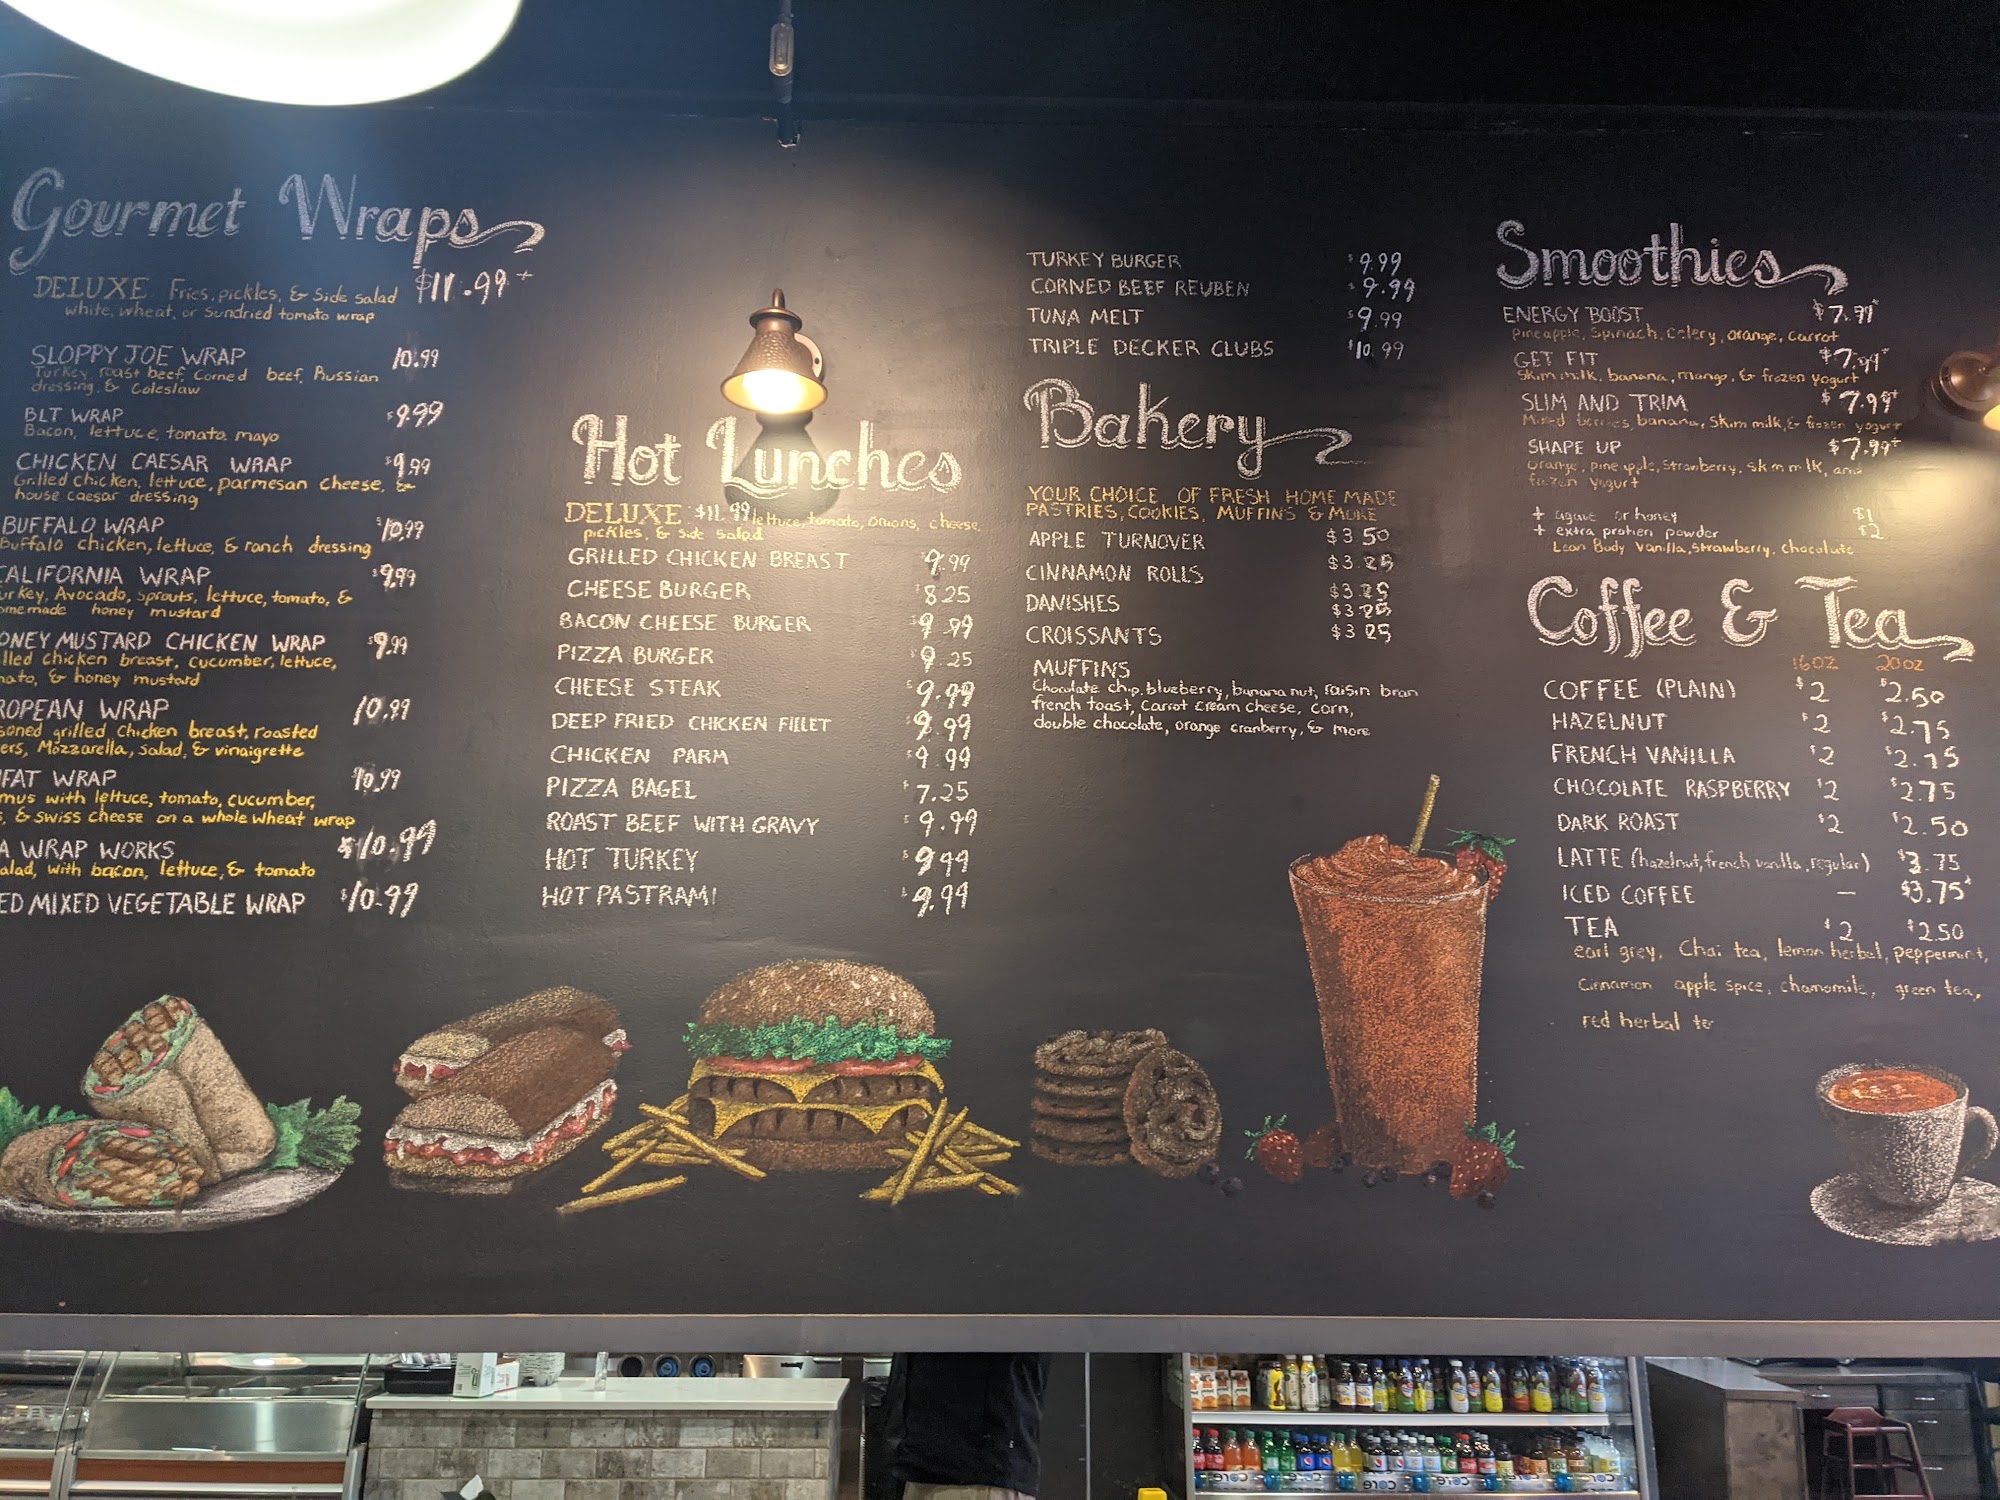 Gourmet Wraps
DELUXE Fries, pickles, & Side salad $11.99+
white, wheat, or Sundried tomato wrap
SLOPPY JOE WRAP 10.99
Turkey, roast beef, Corned beef, Russian
dressing, & Coleslaw
BLT WRAP $9.99
Bacon, lettuce, tomato, mayo
CHICKEN CAESAR WRAP $9.99
Grilled chicken, lettuce, parmesan cheese, &
house caesar dressing
BUFFALO WRAP $10.99
Buffalo chicken, lettuce, & ranch dressing
CALIFORNIA WRAP $9.99
urkey, Avocado, Sprouts, lettuce, tomato, &
omemade honey mustard
ONEY MUSTARD CHICKEN WRAP $9.99
lled chicken breast, cucumber, lettuce,
mato, & honey mustard
ROPEAN WRAP 10.99
soned grilled, chicken breast, roasted
ers, Mozzarella, Salad, & vinaigrette
FAT WRAP 10.99
mus with lettuce, tomato, cucumber,
, & swiss cheese on a whole wheat wrap
A WRAP WORKS $10.99
alad, with bacon, lettuce, & tomato
ED MIXED VEGETABLE WRAP $10.99
Hot Lunches
DELUXE $11.99 lettuce, tomato, onions, cheese,
pickles, & side salad
GRILLED CHICKEN BREAST 9.99
CHEESE BURGER $8.25
BACON CHEESE BURGER $9.99
PIZZA BURGER $9.25
CHEESE STEAK $9.99
DEEP FRIED CHICKEN FILLET $9.99
CHICKEN PARM $9.99
PIZZA BAGEL $7.25
ROAST BEEF WITH GRAVY $9.99
HOT TURKEY $9.99
HOT PASTRAMI $9.99
TURKEY BURGER $9.99
CORNED BEEF REUBEN $9.99
TUNA MELT $9.99
TRIPLE DECKER CLUBS $10.99
Bakery
YOUR CHOICE OF FRESH HOME MADE
PASTRIES, COOKIES, MUFFINS & MORE
APPLE TURNOVER $3.50
CINNAMON ROLLS $3.25
DANISHES $3.25
$3.25
CROISSANTS $3.25
MUFFINS
Chocolate chip, blueberry, banana nut, raisin bran
french toast, Carrot cream cheese, Corn,
double chocolate, orange cranberry, & more
Smoothies
ENERGY BOOST $7.99+
pineapple, Spinach, Celery, orange, Carrot
GET FIT $7.99+
Skim milk, banana, mango, & frozen yogurt
SLIM AND TRIM $7.99+
Mixed berries, banana, Skim milk, & frozen yogurt
SHAPE UP $7.99+
orange, pineapple, Strawberry, skim milk, and
frozen yogurt
+ agave or honey $1
+ extra protien powder $2
Lean Body Vanilla, Strawberry, chocolate
Coffee & Tea
16oz 20oz
COFFEE (PLAIN) $2 $2.50
HAZELNUT $2 $2.75
FRENCH VANILLA $2 $2.75
CHOCOLATE RASPBERRY $2 $2.75
DARK ROAST $2 $2.50
LATTE (hazelnut, french vanilla, regular) $3.75
ICED COFFEE — $3.75+
TEA $2 $2.50
earl grey, Chai tea, lemon herbal, peppermint,
Cinnamon apple spice, chamomile, green tea,
red herbal te